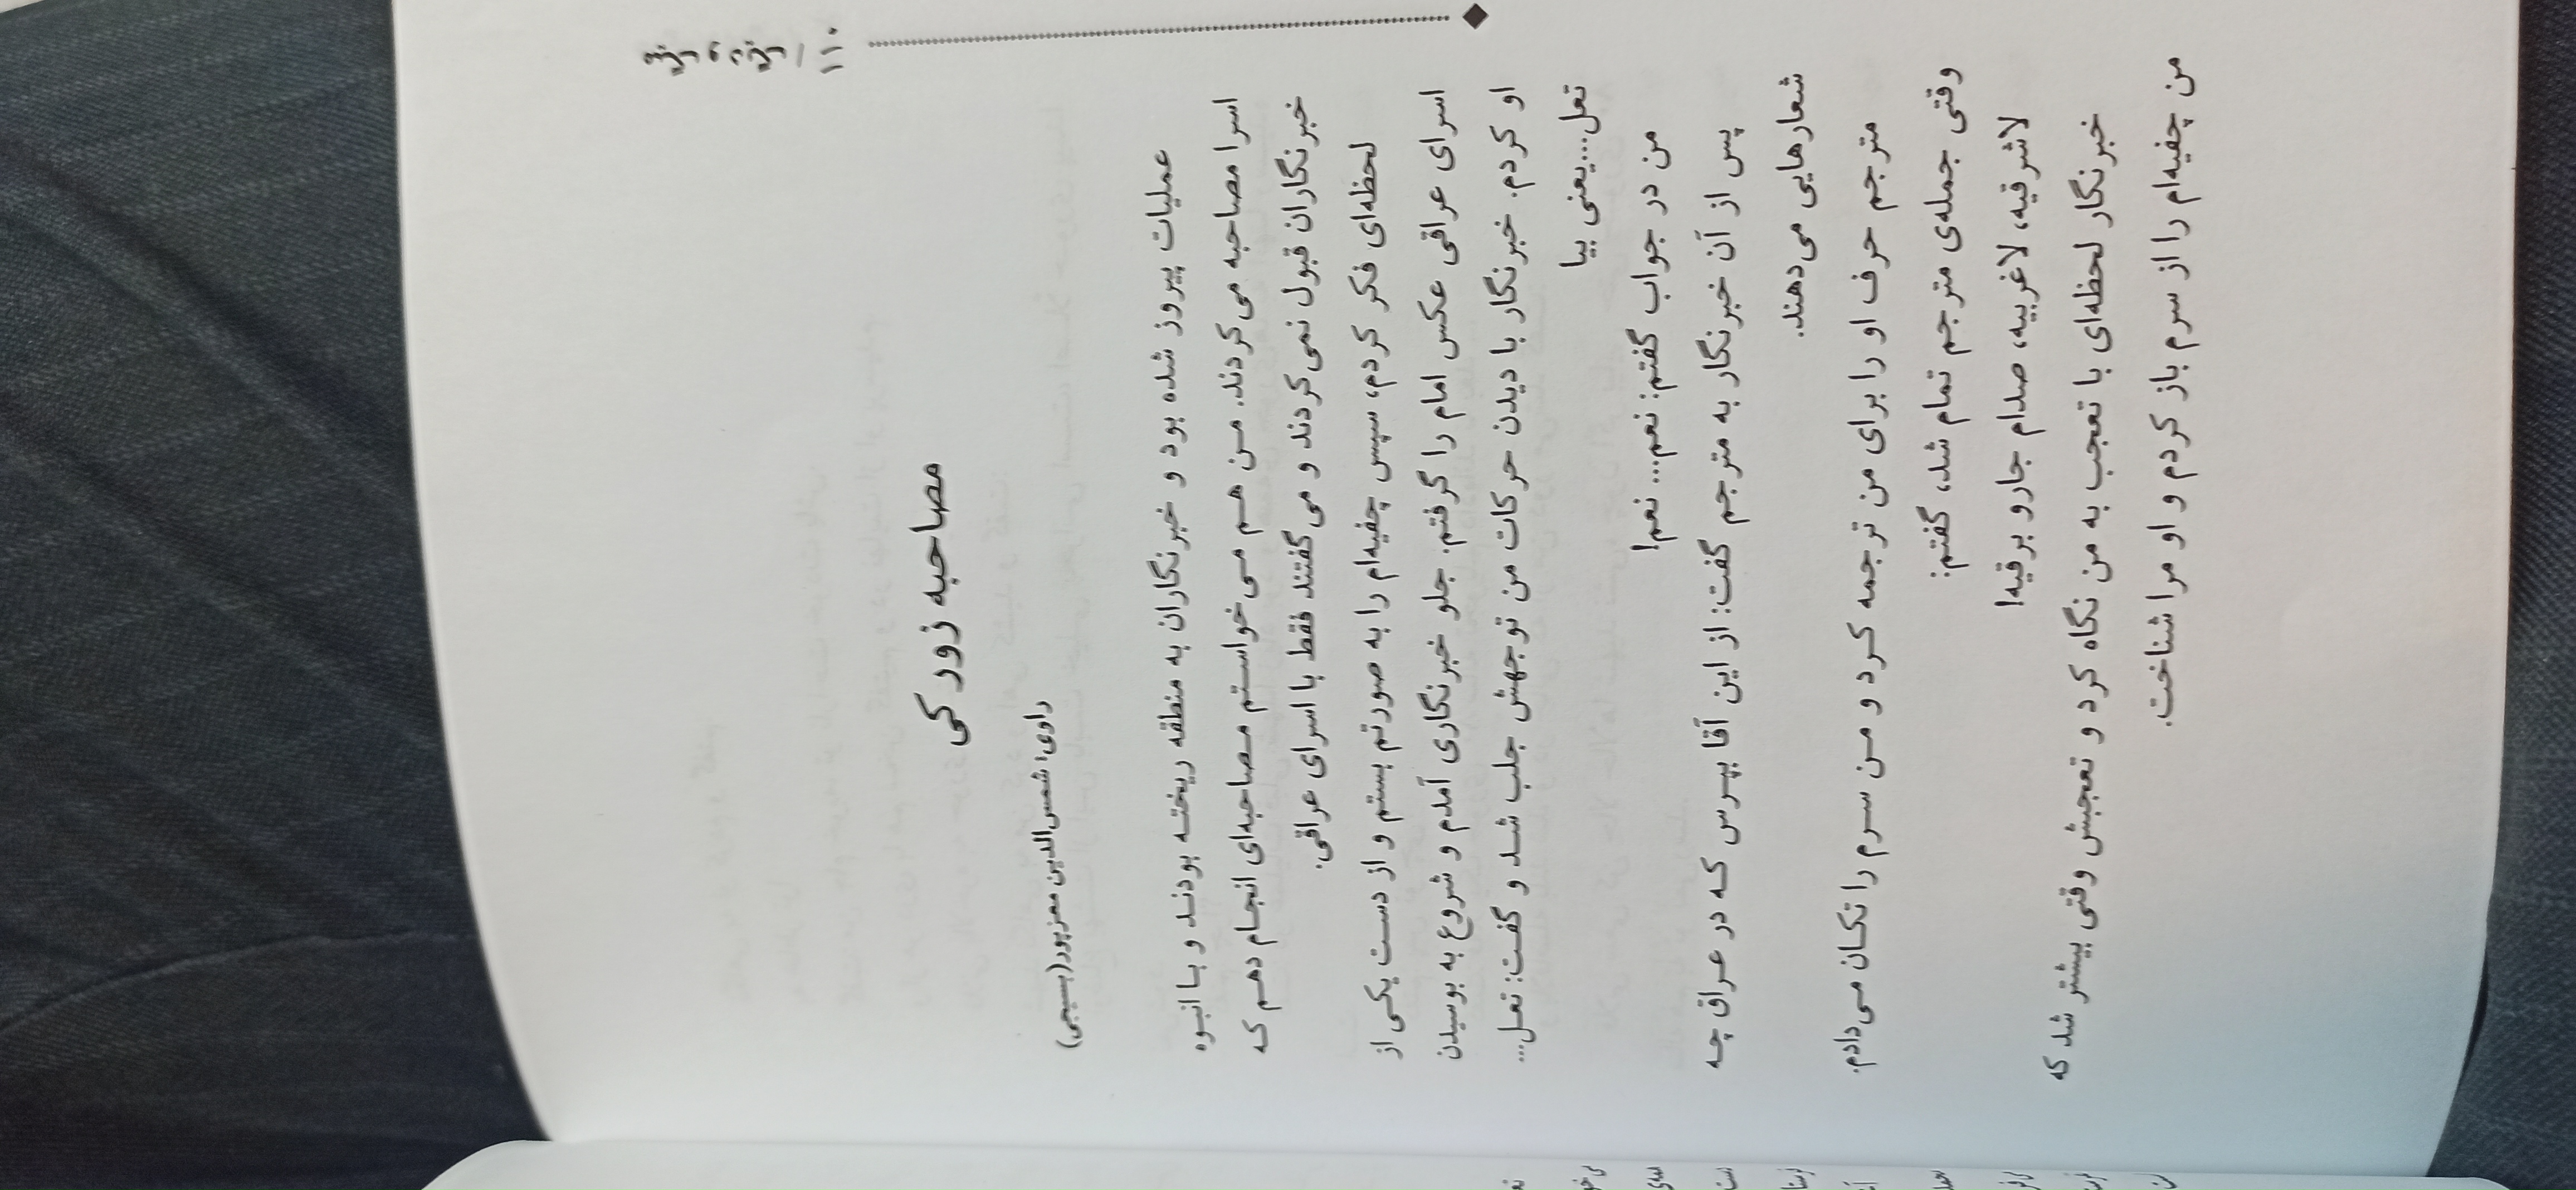 ۱۱۰ /
مصاحبه زورکی
راوی: شمس‌الدین معزپور(بسیجی)
عملیات پیروز شده بود و خبرنگاران به منطقه ریخته بودند و با انبوه
اسرا مصاحبه می‌کردند. من هم می‌خواستم مصاحبه‌ای انجام دهم که
خبرنگاران قبول نمی‌کردند و می‌گفتند فقط با اسرای عراقی.
لحظه‌ای فکر کردم، سپس چفیه‌ام را به صورتم بستم و از دست یکی از
اسرای عراقی عکس امام را گرفتم. جلو خبرنگاری آمدم و شروع به بوسیدن
او کردم. خبرنگار با دیدن حرکات من توجهش جلب شد و گفت: تعل...
تعل...یعنی بیا
من در جواب گفتم: نعم... نعم!
پس از آن خبرنگار به مترجم گفت: از این آقا بپرس که در عراق چه
شعارهایی می‌دهند.
مترجم حرف او را برای من ترجمه کرد و من سرم را تکان می‌دادم.
وقتی جمله‌ی مترجم تمام شد، گفتم:
لاشرقیه، لاغربیه، صدام جارو برقیه!
خبرنگار لحظه‌ای با تعجب به من نگاه کرد و تعجبش وقتی بیشتر شد که
من چفیه‌ام را از سرم باز کردم و او مرا شناخت.